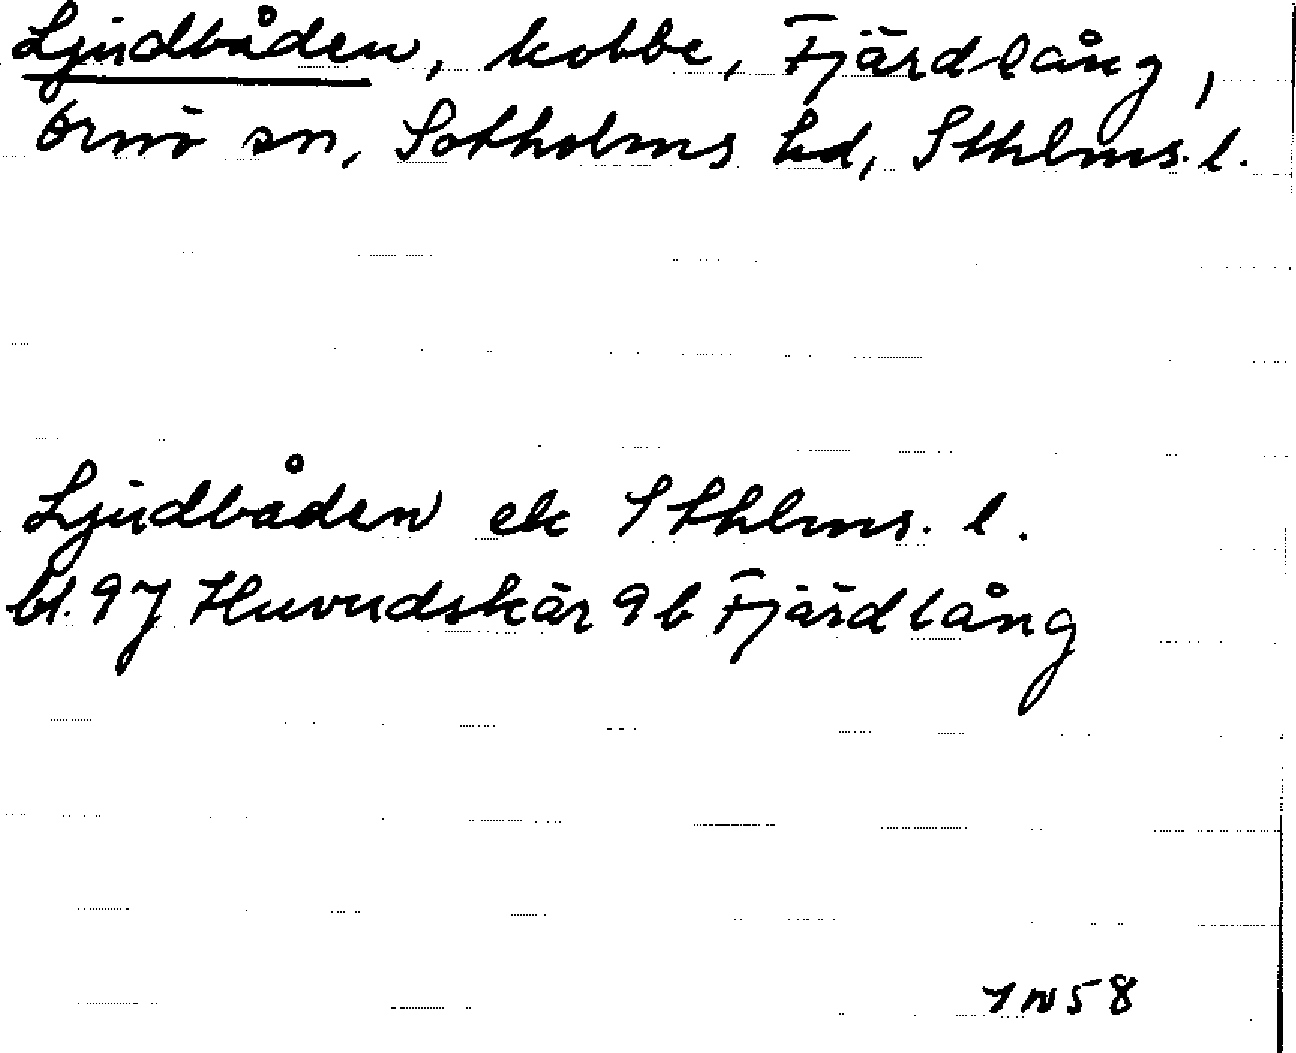 Ljudbåden, kobbe, Fjärdlång,
Ornö sn, Sotholms hd, Sthlms. l.
Ljudbåden ek Sthlms. l.
bl. 97 Huvudskär 9 b Fjärdlång
58